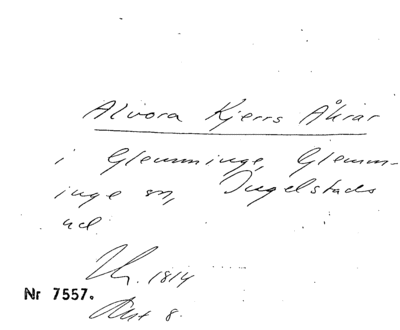 Alvora Kjerrs Åkrar
i Glemminge, Glemm-
inge sn, Ingelstads
hd
Uk. 1814
Nr 7557.
Akt 8.